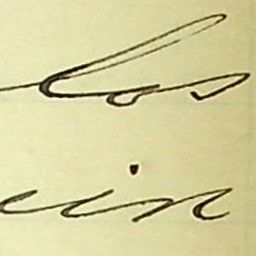 los
ein